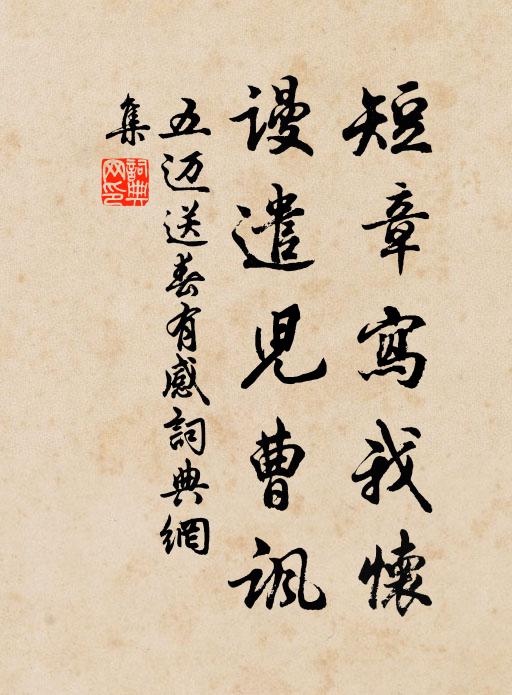 短章寫我懷
謾遣兒曹諷
五迈送春有感詞典網
集
詞典网印